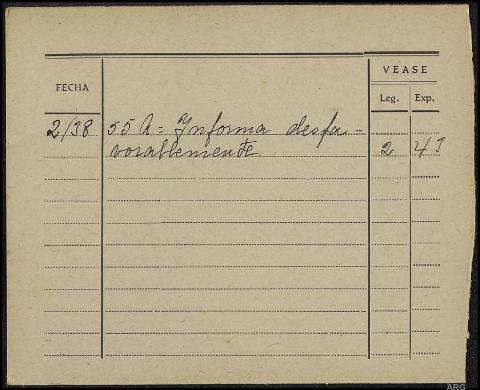 VEASE
FECHA
Leg. Exp.
2/38 55 A = Informa desfa-
vorablemente 2 47
ARG